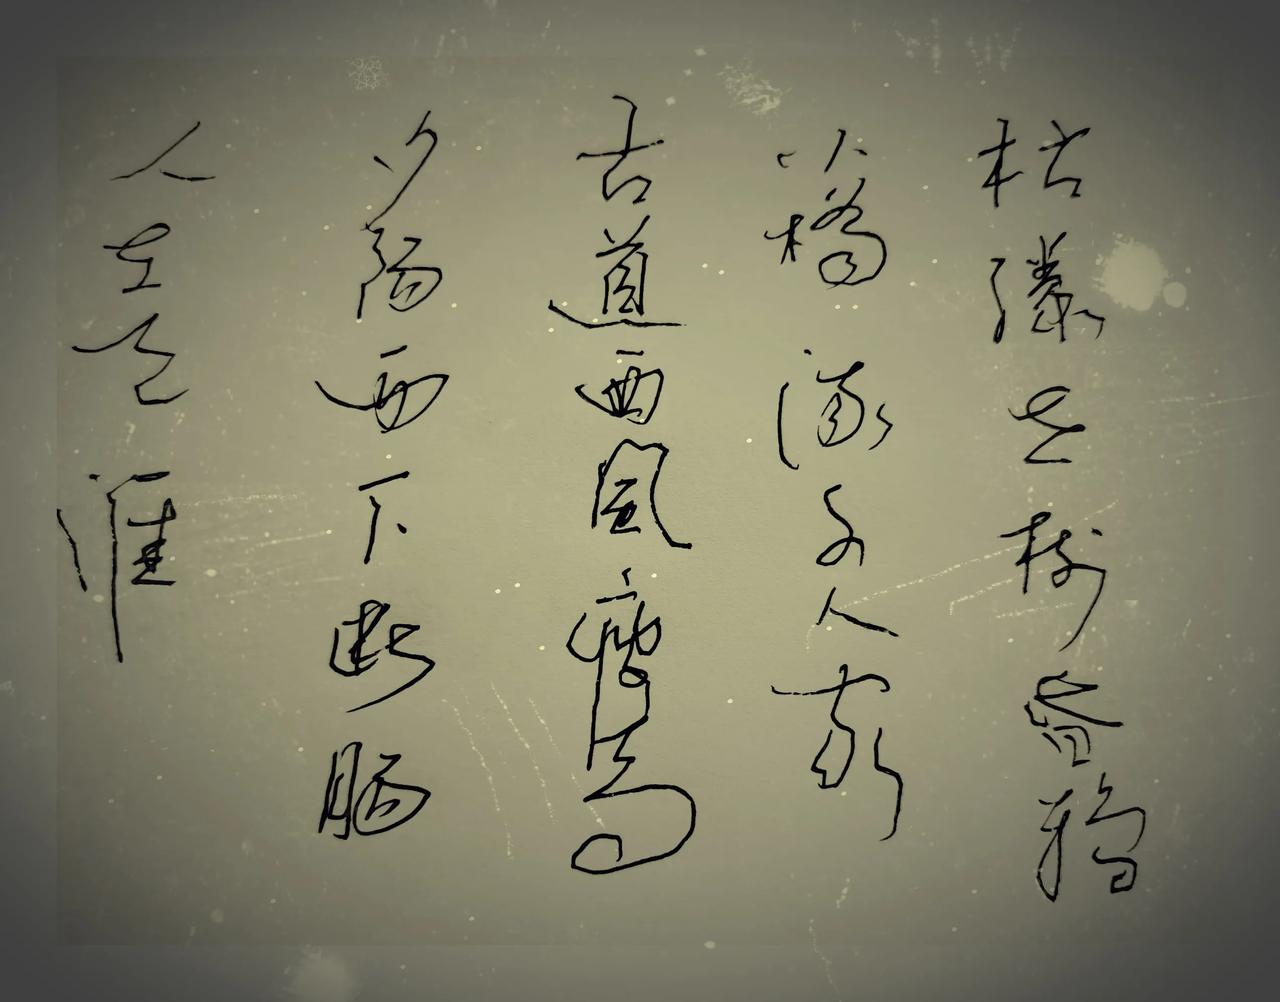 枯藤老树昏鸦
小橋流水人家
古道西風瘦马
夕陽西下断腸
人在天涯